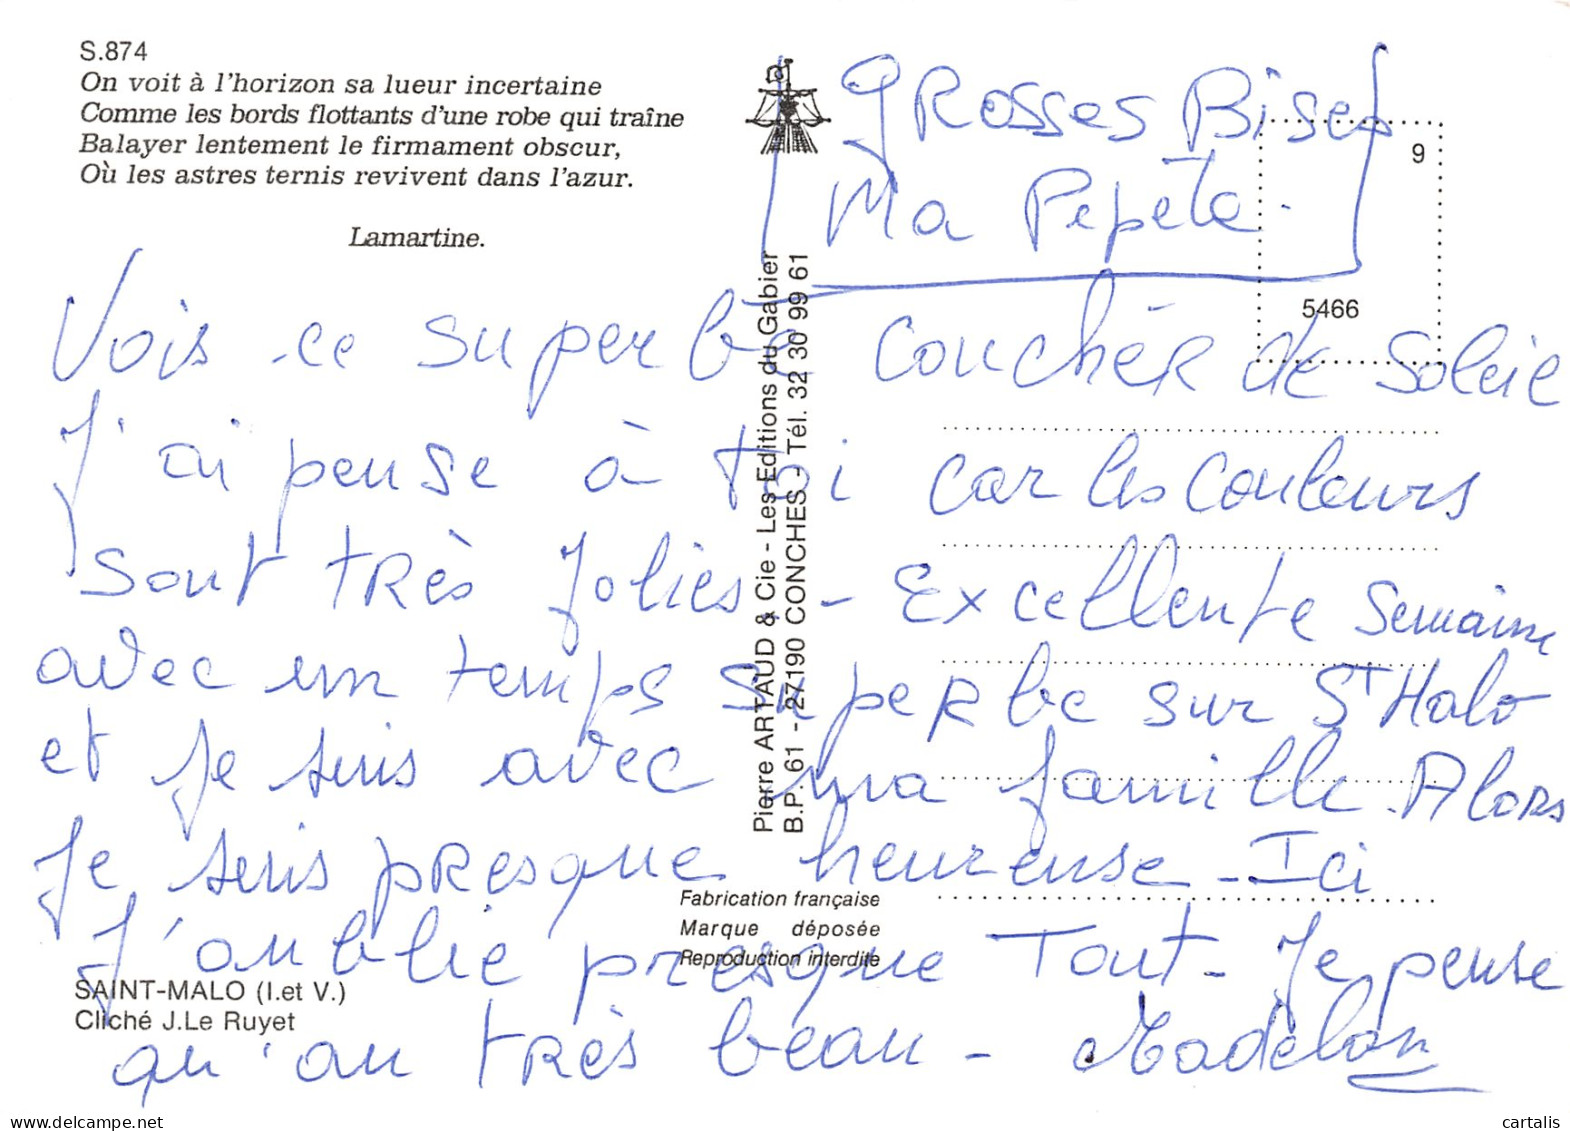 S.874
On voit à l'horizon sa lueur incertaine
Comme les bords flottants d'une robe qui traîne
Balayer lentement le firmament obscur,
Où les astres ternis revivent dans l'azur.
Lamartine.
grosses Bises
Ma Pepète.
9
5466
Vois ce superbe couchér de Soleil
J'ai pensé à toi car les couleurs
sont très Jolies - Excellente semaine
avec un temps superbe sur St Malo
et je suis avec ma famille. Alors
Je suis presque heureuse - Ici
J'oublie presque Tout - Je pense
qu'au très beau - Madelon
Pierre ARTAUD & Cie - Les Editions du Gabier
B.P. 61 - 27190 CONCHES - Tél. 32 30 99 61
Fabrication française
Marque déposée
Reproduction interdite
SAINT-MALO (I.et V.)
Cliché J.Le Ruyet
delcampe.net
cartalis